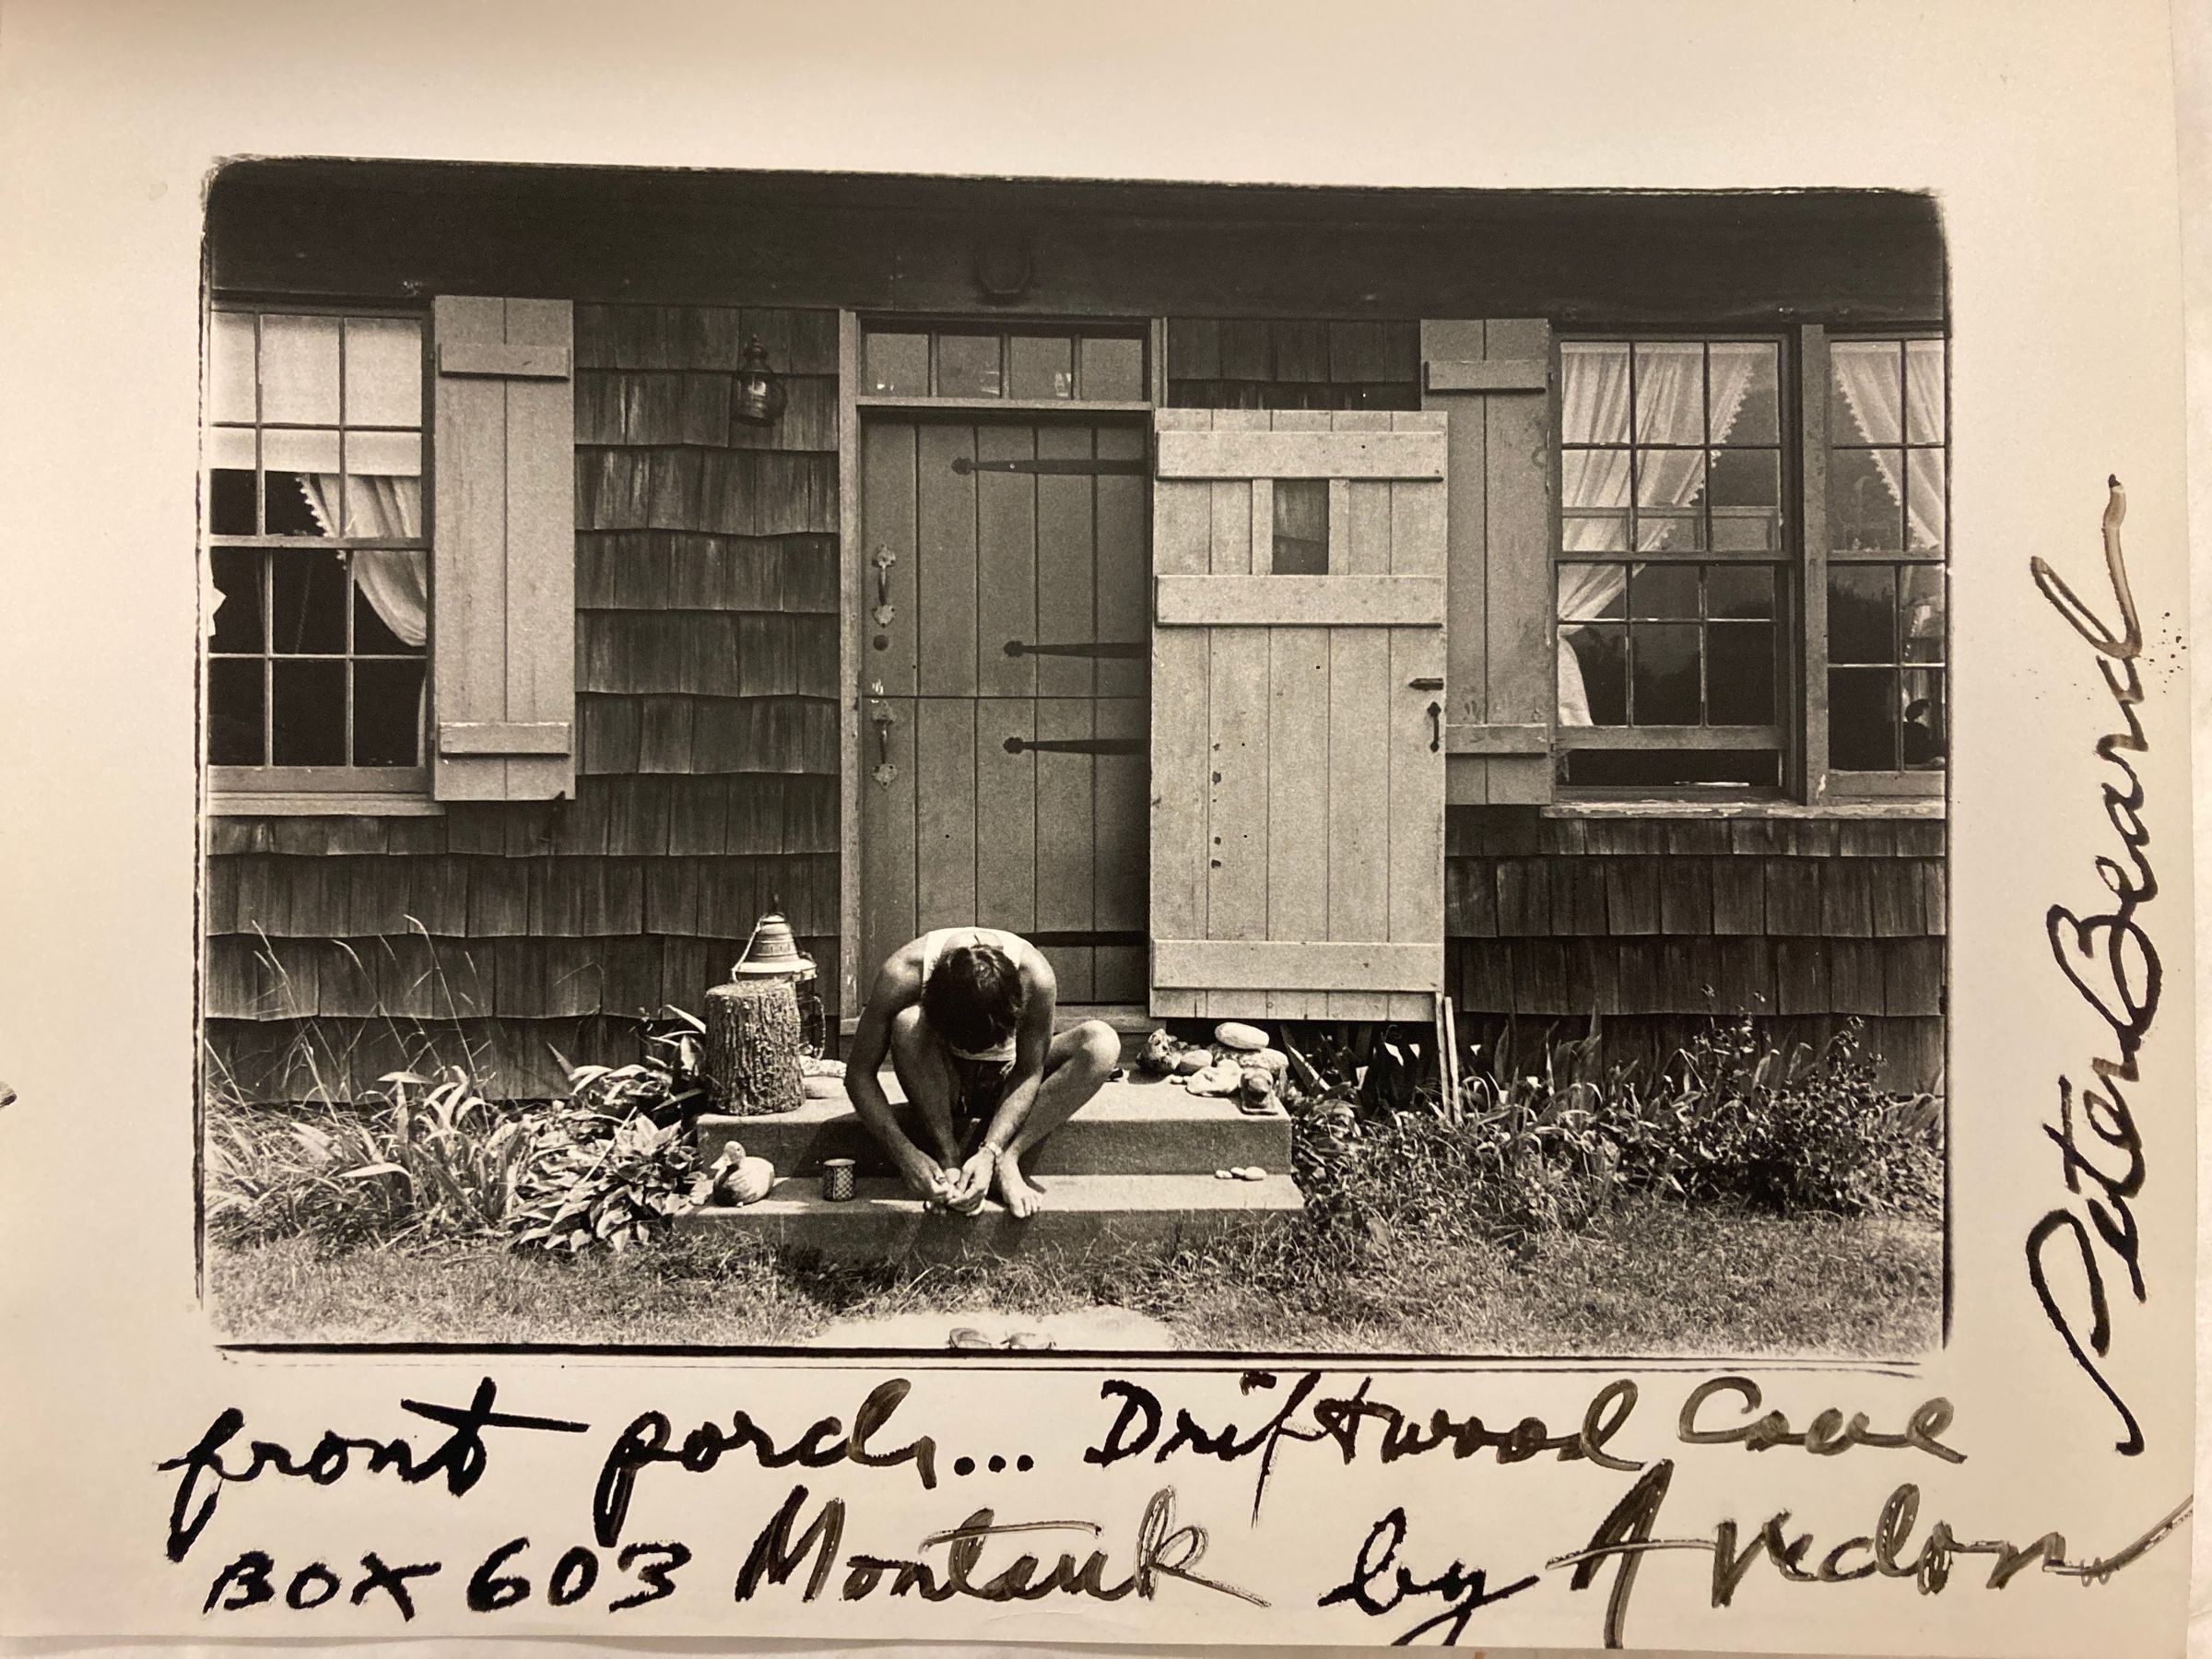 front porch... Driftwood Cove
BOX 603 Montauk by Avedon
Peter Beard